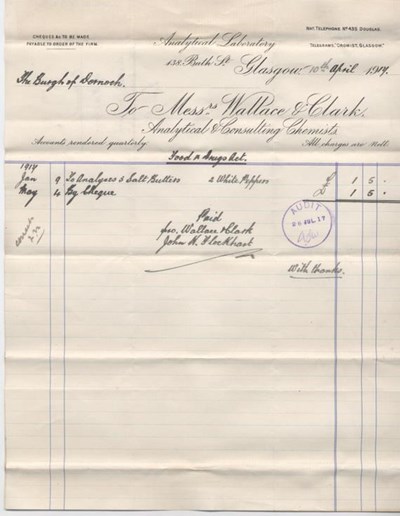 CHEQUES &c TO BE MADE
PAYABLE TO ORDER OF THE FIRM.
NAT. TELEPHONE Nº 420 DOUGLAS.
TELEGRAMS "CHEMIST, GLASGOW."
Analytical Laboratory
138, Bath St. Glasgow 10th April 1917.
The Burgh of Dornoch.
To Messrs Wallace & Clark,
Analytical & Consulting Chemists.
Accounts rendered quarterly.
All charges are Nett.
Food & Drugs Act.
1917
Jan 9 To Analyses 5 Salt Butters 2 White Peppers 1 5 -
May 4 By Cheque 1 5 -
AUDIT
JUL 17
Paid
pro. Wallace & Clark
John H. Flockhart
With thanks.